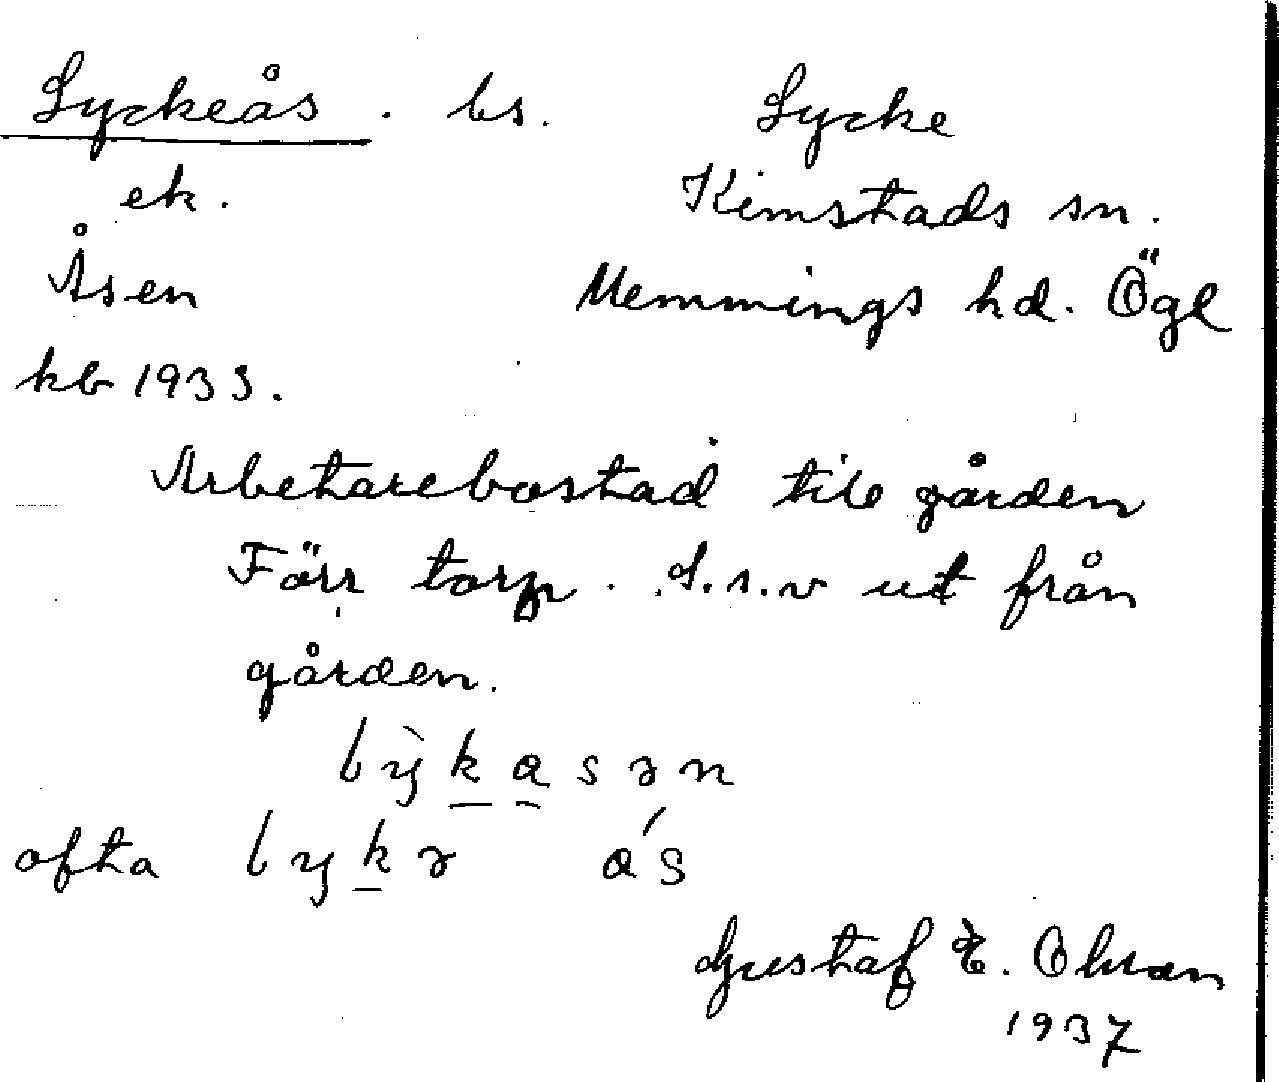 Lyckeås . bs. Lycke
ek. Kimstads sn.
Åsen Memmings hd. Ögl
kb 1933.
Arbetarebostad till gården
Förr torp. d.s.v ut från
gården.
lỳkasən
ofta lykə ás
Gustaf E. Ohman
1937